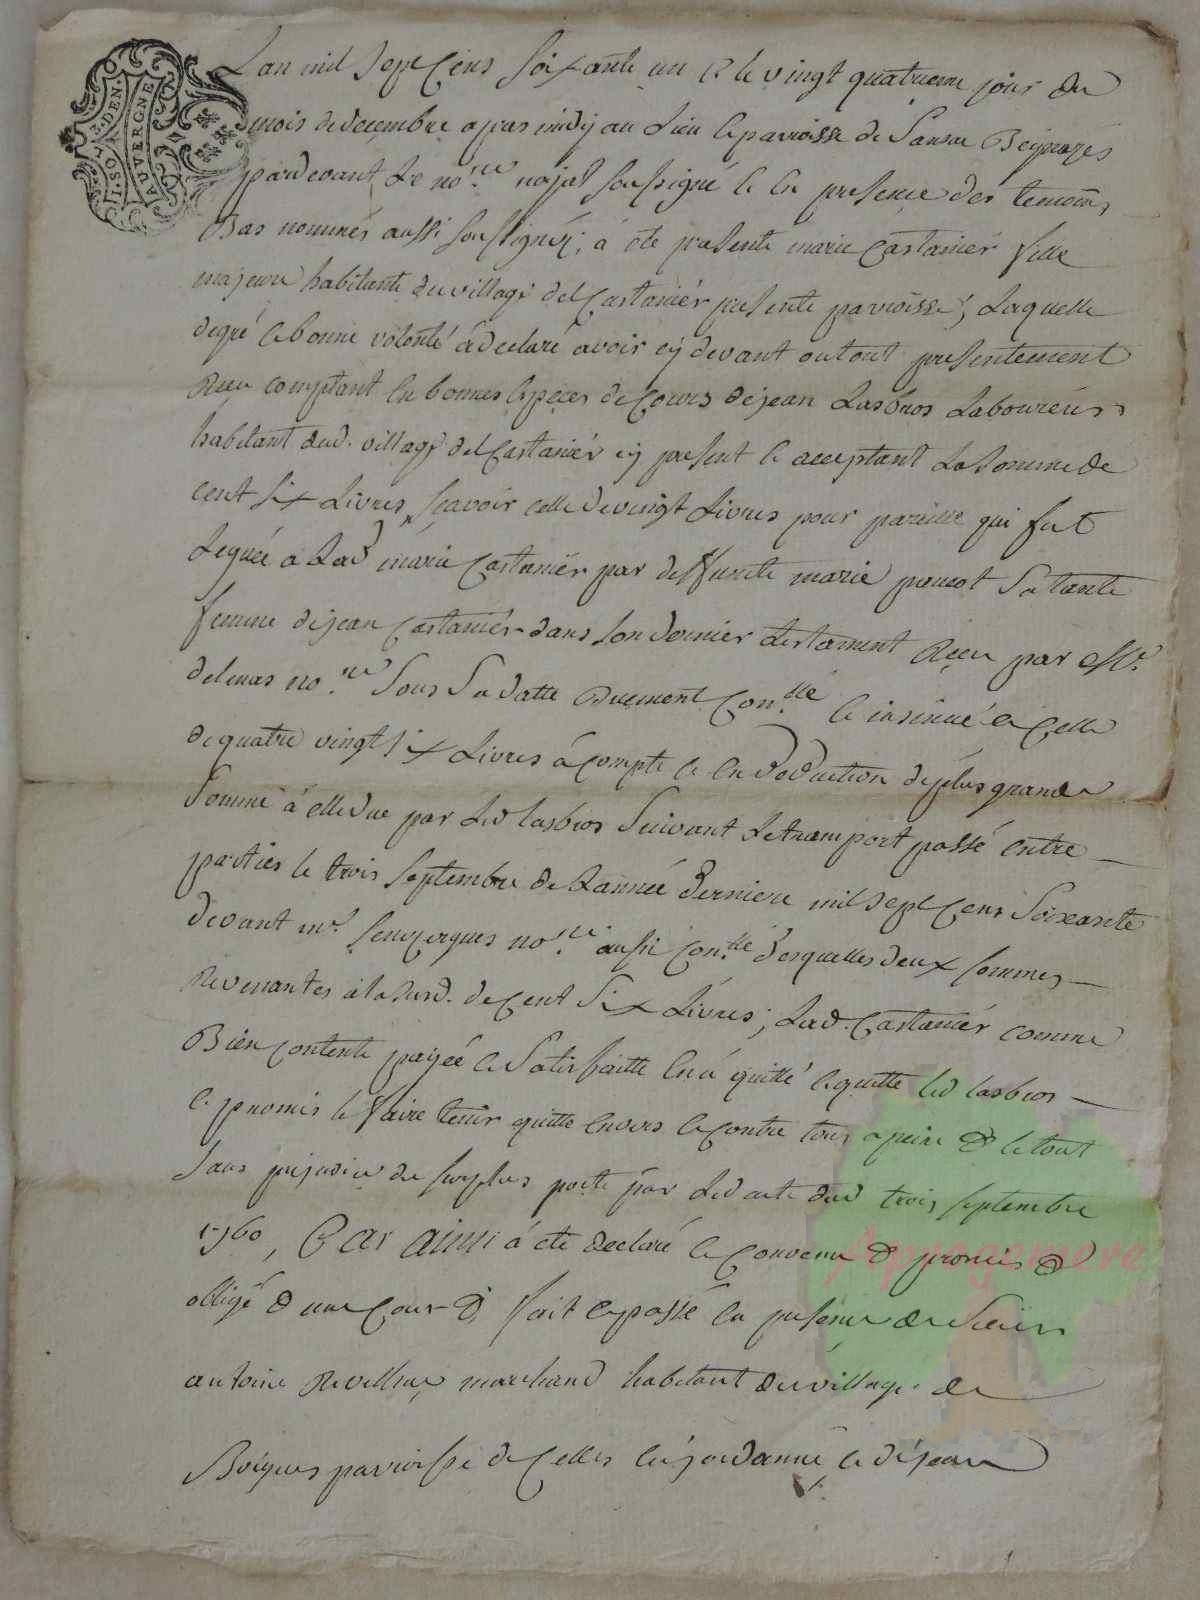 AUVERGNE
Lan mil Sept Cens soixante un & le vingt quatrieme jour du
mois de decembre apres midy au Lieu & parroisse de Sansac Veyrazes
pardevant Le no.re royal soussigné & En presence des temoins
Bas nommés aussi soussignéz, á été presente marie Castanier fille
majeure habitante du village del Castanier presente parroisse, Laquelle
de gré & bonne volonté á declaré avoir cy devant ou tout presentement
Reçu comptant En bonnes Especes de Cours de jean Lasbros Laboureur
habitant dud. village del Castanier cy present & acceptant La somme de
cent six Livres, sçavoir celle de vingt Livres pour pareille qui fut
Leguée a Lad. marie Castanier par deffunte marie Sa tante
femme de jean Castanier dans son dernier testament Reçu par Me.
delmas no.re sous Sa datte duement Con.llé & insinué & Celle
de quatre vingt six Livres á compte & En Deduction de plus grande
Somme á elle due par Led Lasbros Suivant Le transport passé entre
parties le trois septembre de L'année Derniere mil sept Cens soixante
devant me. Senezergues no.re aussi Con.llé Desquelles deux sommes
Revenantes á la susd. de Cent Six Livres; Lad. Castanier comme
Bien Contente payée & Satisfaitte En á quitté & quitte led lasbros
& promis le faire tenir quitte Envers & contre tous a peine & le tout
Sans prejudice du surplus porté par Led acte dud trois septembre
1760, Car ainsi á été declaré & Convenu & promis &
obligé & une Cour & fait & passé En presence de Sieur
antoine marchand habitant du village de
parroisse de Celles En jordanne & de jean
Aprogemere